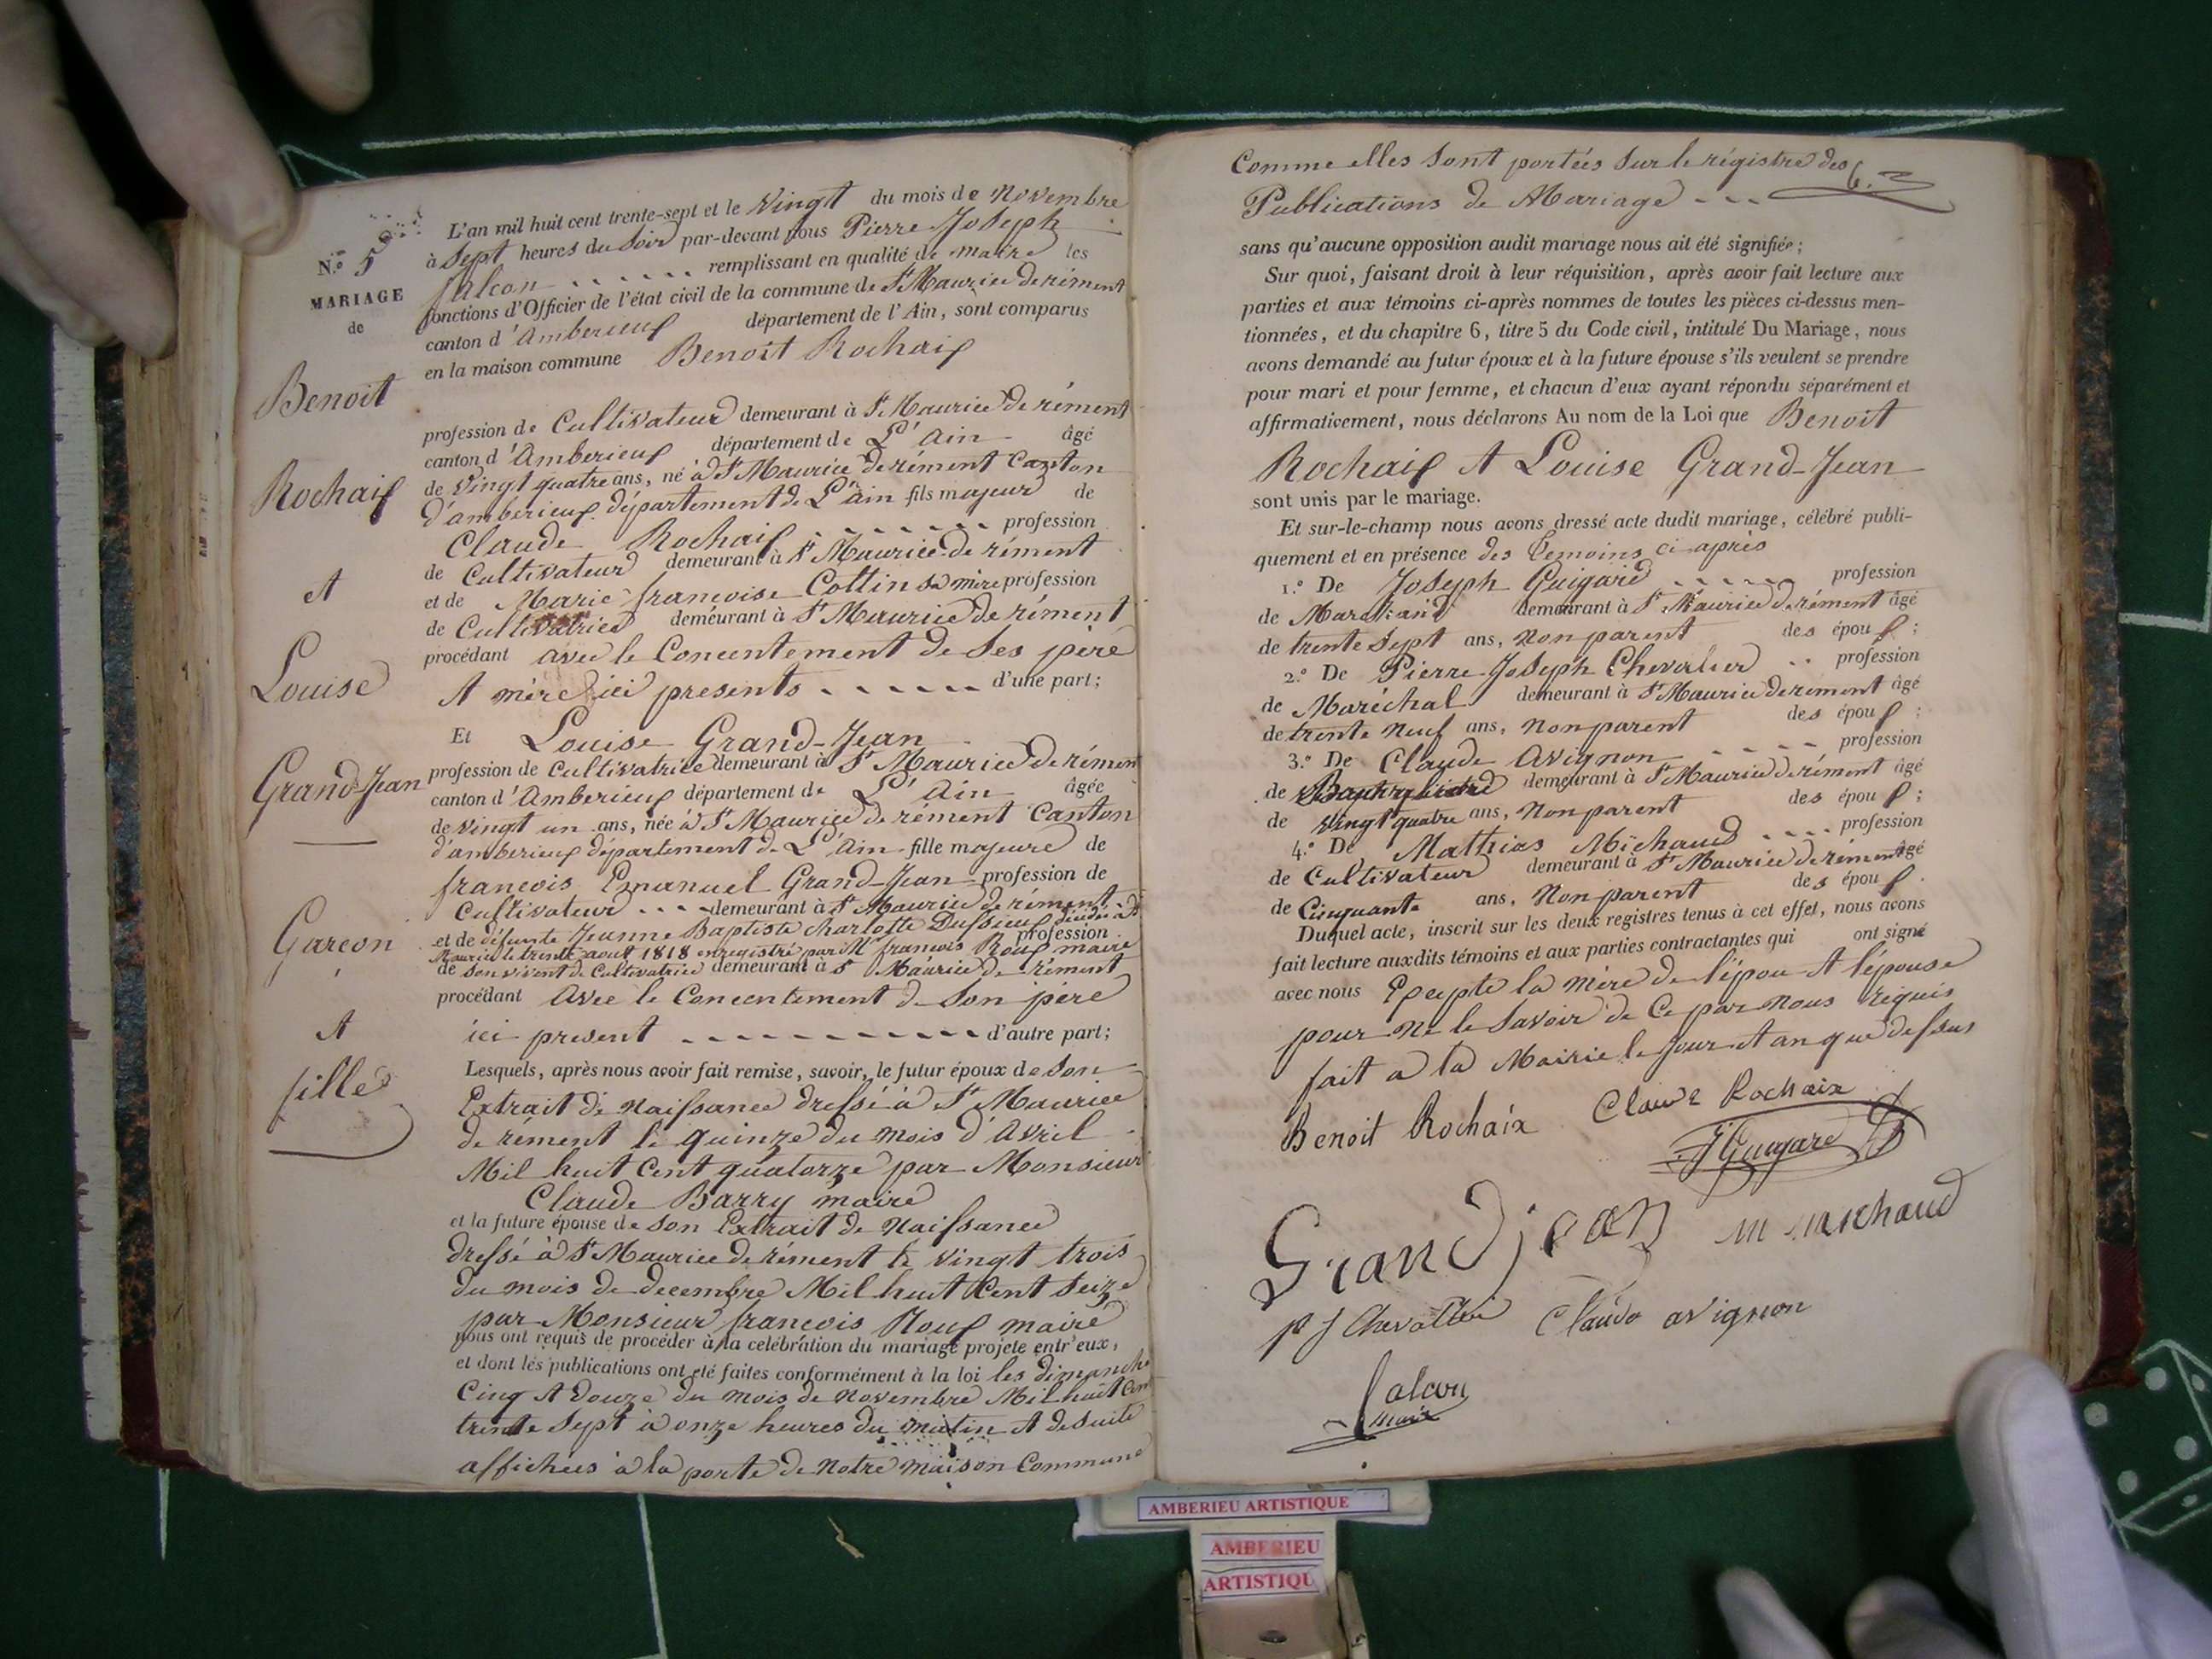 N.º 5
MARIAGE
de
Benoit
Rochaix
et
Louise
Grand-Jean
Garcon
et
fille
L'an mil huit cent trente-sept et le vingt du mois de Novembre
à Sept heures du Soir par-devant nous Pierre Joseph
falcon remplissant en qualité de maire les
fonctions d'Officier de l'état civil de la commune de St Maurice de rément
canton d'Amberieux département de l'Ain, sont comparus
en la maison commune Benoit Rochaix
profession de Cultivateur demeurant à St Maurice de rément
canton d'Amberieux département de L'Ain âgé
de vingt quatre ans, né à St Maurice de rément Canton
d'amberieux département de L'ain fils majeur de
Claude Rochaix profession
de Cultivateur demeurant à St Maurice de rément
et de Marie francoise Cottin sa mère profession
de Cultivatrice demeurant à St Maurice de rément
procédant avec le Concentement de Ses père
et mère ici presents d'une part;
Et Louise Grand-Jean
profession de Cultivatrice demeurant à St Maurice de rément
canton d'Amberieux département de L'Ain âgée
de vingt un ans, née à St Maurice de rément Canton
d'amberieux département de L'Ain fille majeure de
francois Emanuel Grand-Jean profession de
Cultivateur demeurant à St Maurice de rément
et de défunte Jeanne Baptiste Charlotte Dussieux décédée à St profession
Maurice le trente aout 1818 enregistré par Mr francois Roux maire
de son vivent de Cultivatrice demeurant à St Maurice de rément
procédant Avec le Concentement de Son père
ici present d'autre part;
Lesquels, après nous avoir fait remise, savoir, le futur époux de Son
Extrait de Naissance dressé à St Maurice
de rément le quinze du mois d'Avril
Mil huit Cent quatorze par Monsieur
Claude Barry maire
et la future épouse de son Extrait de Naissance
dressé à St Maurice de rément le vingt trois
du mois de decembre Mil huit Cent Seize
par Monsieur francois Roux maire
nous ont requis de procéder à la celébration du mariage projete entr'eux,
et dont les publications ont eté faites conformément à la loi les dimanche
Cinq et Douze du mois de Novembre Mil huit Cent
trente Sept à onze heures du matin et de suite
affichées à la porte de Notre maison Commune
Comme elles Sont portées Sur le régistre des
Publications de Mariage
sans qu'aucune opposition audit mariage nous ait été signifiée;
Sur quoi, faisant droit à leur réquisition, après avoir fait lecture aux
parties et aux témoins ci-après nommes de toutes les pièces ci-dessus men-
tionnées, et du chapitre 6, titre 5 du Code civil, intitulé Du Mariage, nous
avons demandé au futur époux et à la future épouse s'ils veulent se prendre
pour mari et pour femme, et chacun d'eux ayant répondu séparément et
affirmativement, nous déclarons Au nom de la Loi que Benoit
Rochaix et Louise Grand-Jean
sont unis par le mariage.
Et sur-le-champ nous avons dressé acte dudit mariage, célébré publi-
quement et en présence des temoins ci-après
1.º De Joseph Guigard profession
de Marchand demeurant à St Maurice de rément âgé
de trente Sept ans, Non parent des époux;
2.º De Pierre Joseph Chevalier profession
de Maréchal demeurant à St Maurice de rément âgé
de trente neuf ans, Non parent des époux;
3.º De Claude Avignon profession
de demeurant à St Maurice de rément âgé
de vingt quatre ans, Non parent des époux;
4.º De Mathias Michaud profession
de Cultivateur demeurant à St Maurice de rément âgé
de Cinquante ans, Non parent des époux.
Duquel acte, inscrit sur les deux registres tenus à cet effet, nous avons
fait lecture auxdits témoins et aux parties contractantes qui ont signé
avec nous Excepte la mère de l'époux et l'épouse
pour ne le Savoir de Ce par Nous requis
fait a la Mairie le jour et an que dessus
Benoit Rochaix Claude Rochaix
J Guigard
Grandjean m michaud
p J Chevallier Claude avignon
falcon
maire
AMBERIEU ARTISTIQUE
AMBERIEU
ARTISTIQU